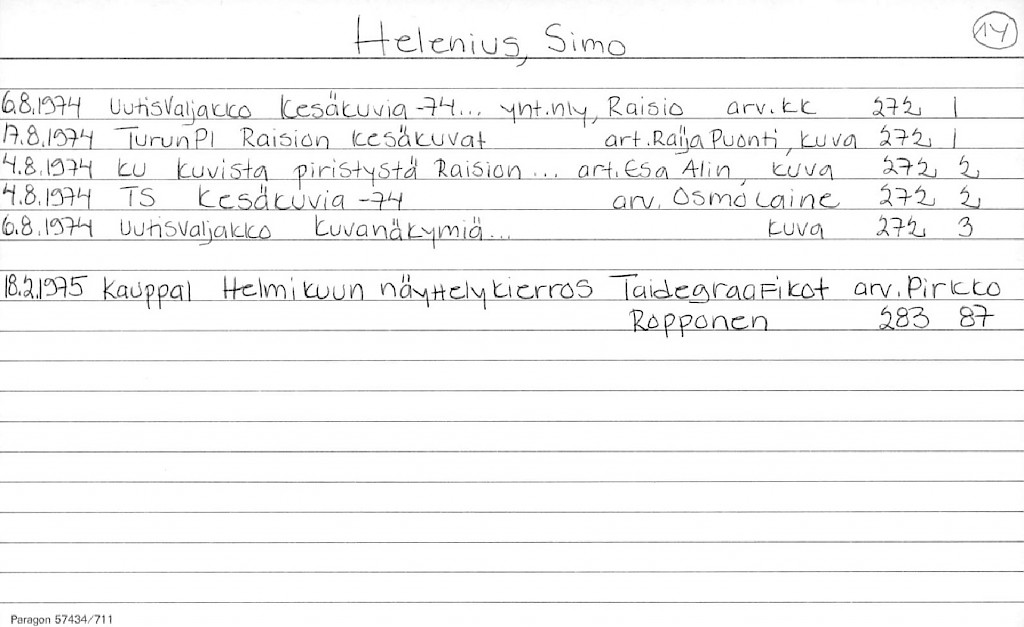 Helenius, Simo
14
6.8.1974 Uutisvaljakko Kesäkuvia -74... ynt.nly, Raisio arv. KK 272 1
17.8.1974 TurunPl Raision Kesäkuvat art. Raija Puonti, kuva 272 1
4.8.1974 KU Kuvista piristystä Raision... art. Esa Alin, kuva 272 2
4.8.1974 TS Kesäkuvia -74 arv. Osmo Laine 272 2
6.8.1974 Uutisvaljakko Kuvanäkymiä... kuva 272 3
18.2.1975 Kauppal Helmikuun näyttelykierros Taidegraafikot arv. Pirkko
Ropponen 283 87
Paragon 57434/711